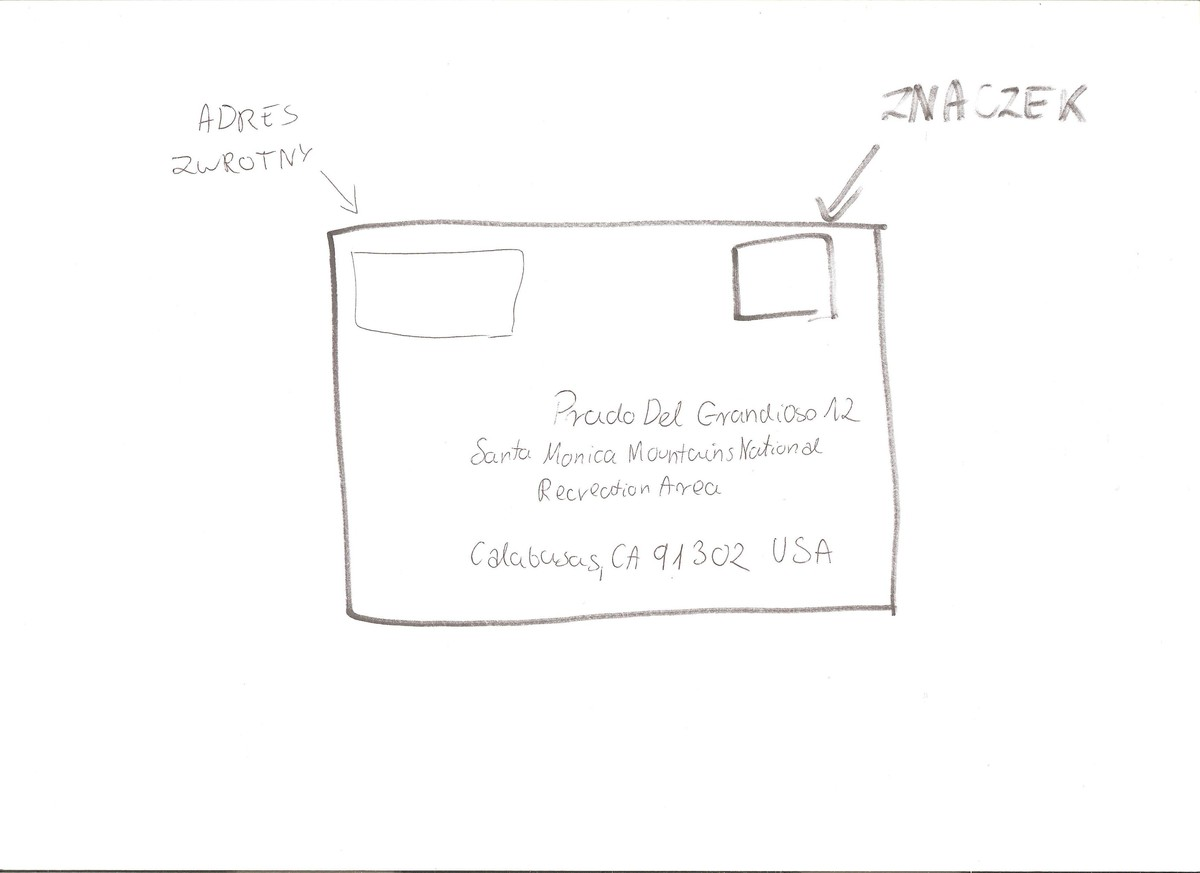 ADRES
ZWROTNY
ZNACZEK
Prado Del Grandioso 12
Santa Monica Mountains National
Recreation Area
Calabasas, CA 91302 USA